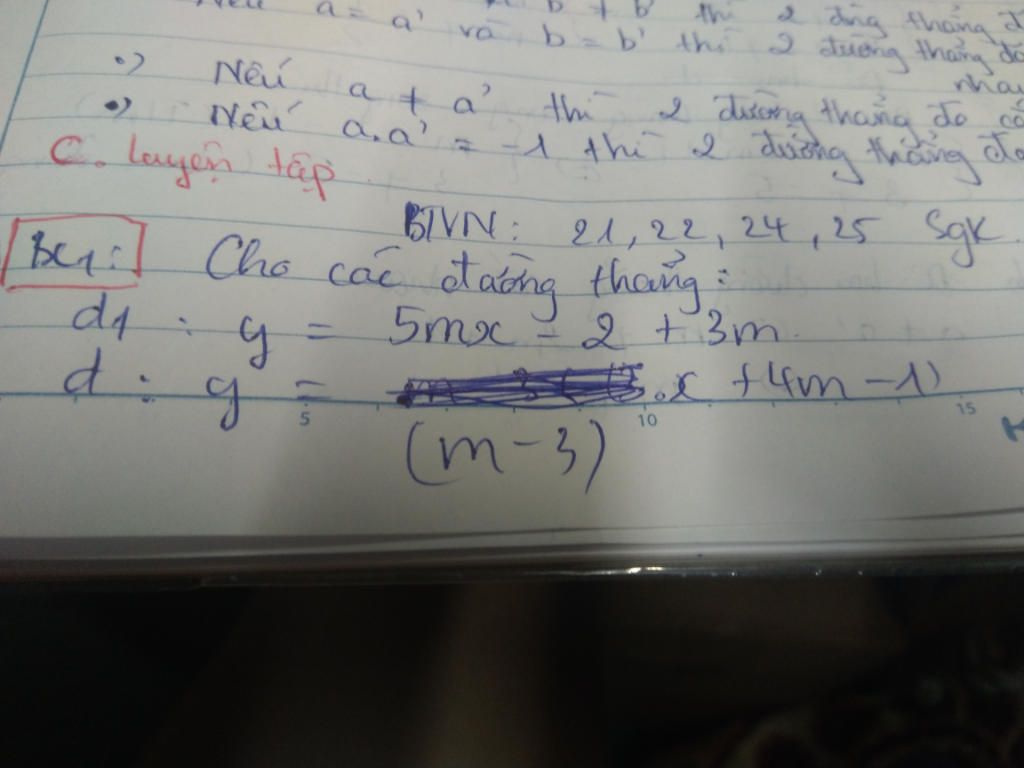 a = a' và b = b' thì 2 đường thẳng
nhau
.) Nếu a ≠ a' thì 2 đường thẳng đo
.) Nếu a.a' = -1 thì 2 đường thẳng
C. Luyện tập
BTVN: 21, 22, 24, 25 Sgk.
Bài 1: Cho các đường thẳng:
d1 : y = 5mx - 2 + 3m
d : y = (m - 3) .x + 4m - 1
5 10 15